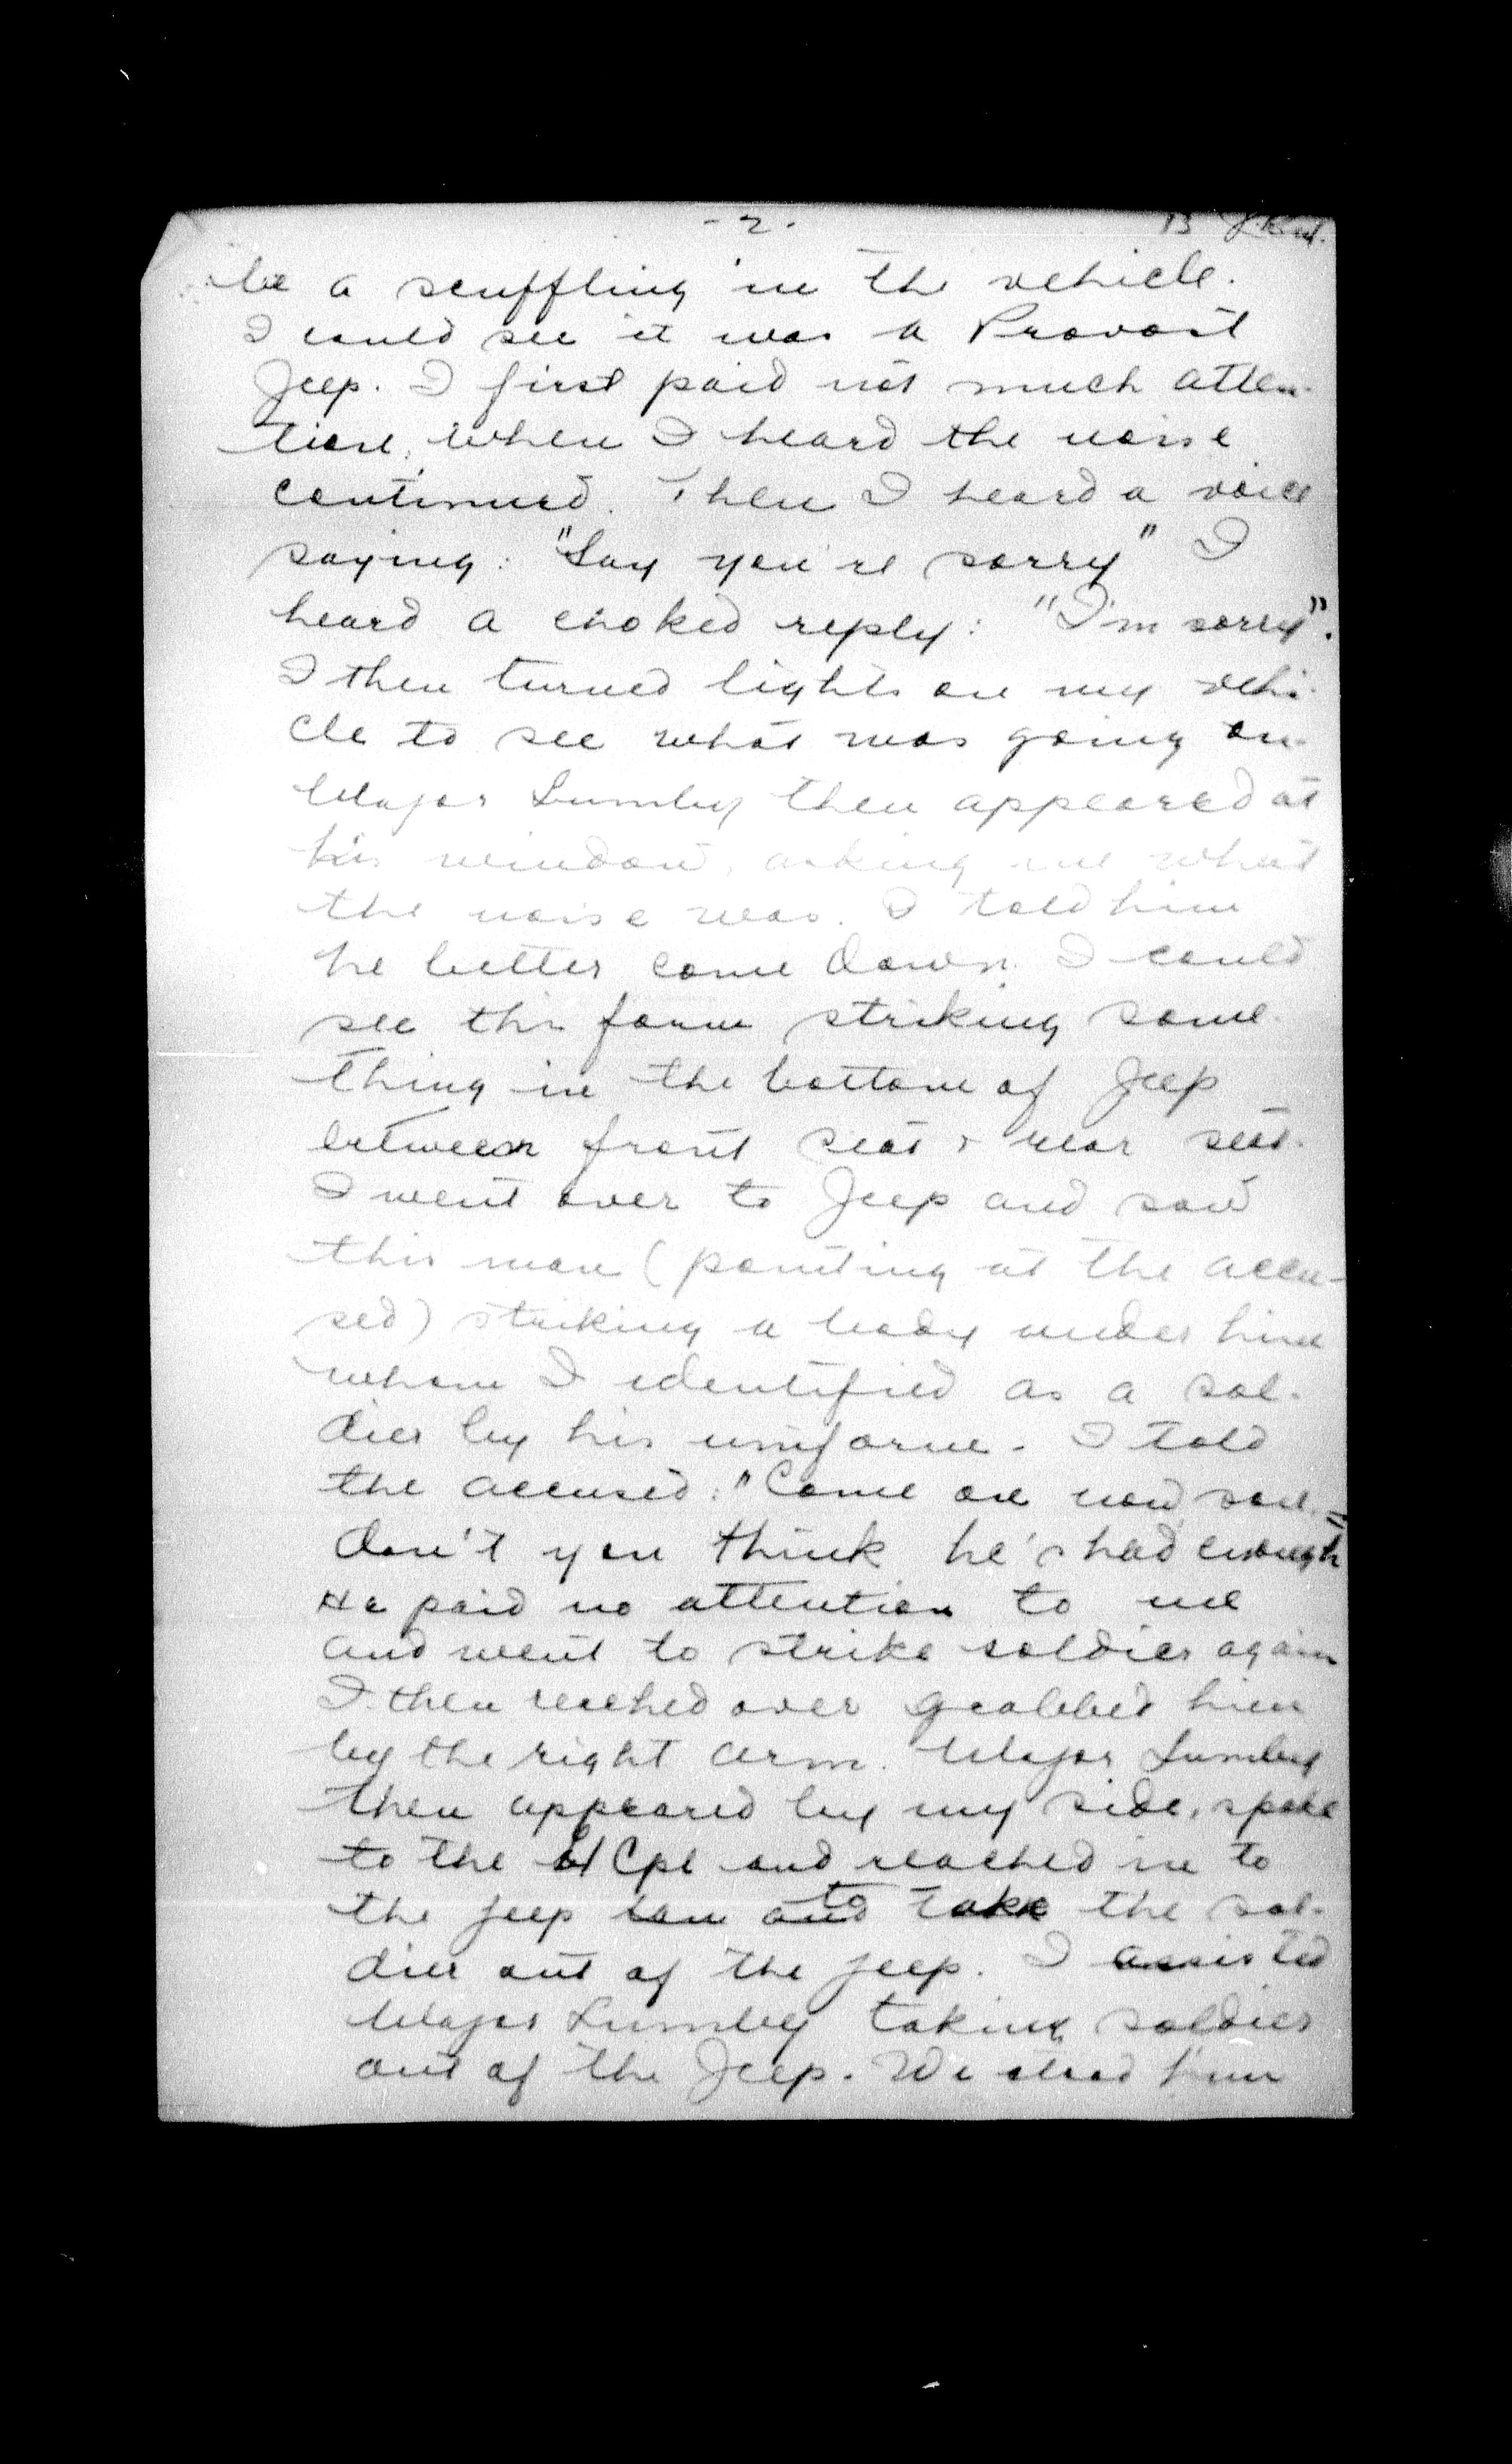 - 2 -
be a scuffling in the vehicle.
I could see it was a Provost
Jeep. I first paid not much atten-
tion, when I heard the noise
continued. Then I heard a voice
saying: "Say you're sorry" I
heard a choked reply: "I'm sorry".
I then turned lights on my vehi-
cle to see what was going on.
Major Lumby then appeared at
his window, asking me what
the noise was. I told him
he better come down. I could
see this form striking some-
thing in the bottom of Jeep
between front seat & rear seat.
I went over to Jeep and saw
this man (pointing at the accu-
sed) striking a body under him
whom I identified as a sol-
dier by his uniform. I told
the accused: "Come on now son,
don't you think he's had enough
He paid no attention to me
and went to strike soldier again
I then reached over grabbed him
by the right arm. Major Lumby
then appeared by my side, spoke
to the L/Cpl and reached in to
the jeep and to take the sol-
dier out of the jeep. I assisted
Major Lumby taking soldier
out of the Jeep. We stood him